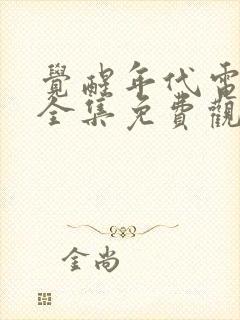 覺醒年代電
全集免費觀
金尚